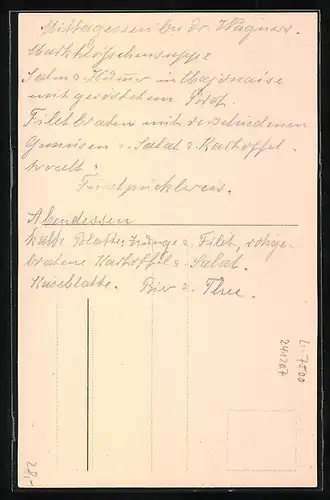 Mittagessen bei Dr. Wagners.
Markklöschensuppe
Salm u. Hummer in Majonaise
mit geröstetem Brot.
Filetbraten mit verschiedenen
Gemüsen u. Salat u. Kartoffel-
Fürstpücklereis.
Abendessen
kalte Platte: Zunge u. Filet, rohge-
bratene Kartoffel u. Salat.
Käseplatte. Bier u. Thee.
Lr 7500
241207
28,-